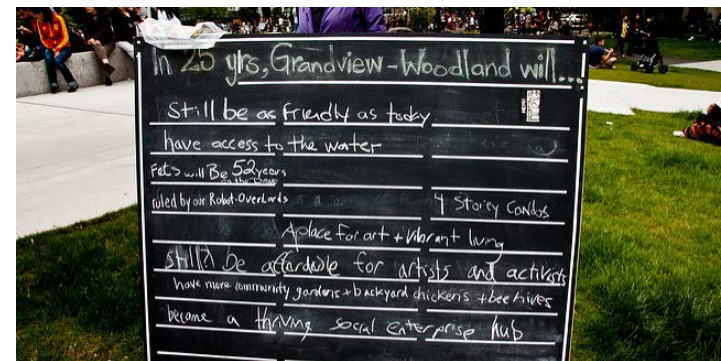 In 25 yrs, Grandview-Woodland will...
Still be as friendly as today
have access to the water
Fets will Be 52 years
on the Drive
ruled by our Robot-Overlords
4 Storey Condos
A place for art + vibrant living
still? be affordable for artists and activists
have more community gardens + backyard chickens + bee hives
become a thriving social enterprise hub